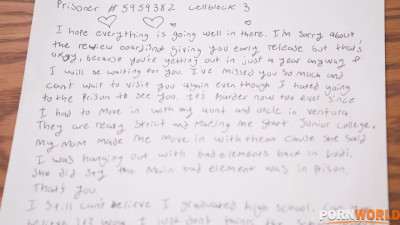 Prisoner #5959382 Cellblock 3
I hope everything is going well in there. I'm sorry about
the review board not giving you early release but that's
okay, because you're getting out in just a year anyway &
I will be waiting for you. I've missed you so much and
can't wait to visit you again even though I hated going
to the prison to see you. It's harder now too ever since
I had to move in with my aunt and uncle in Ventura
They are really strict and making me start Junior College.
My mom made me move in with them cause she said
I was hanging out with bad elements back in Lodi.
She did say the main bad element was in prison.
That's you.
I still can't believe I graduated high school. Can you
believe it? I just don't
PORNWORLD